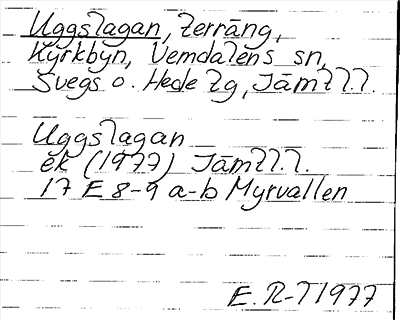 Uggslagan, terräng,
Kyrkbyn, Vemdalens sn,
Svegs o. Hede tg, Jämtl l.
Uggslagan
ek (1977) Jämtl. l.
17 E 8-9 a-b Myrvallen
E. R-T 1977